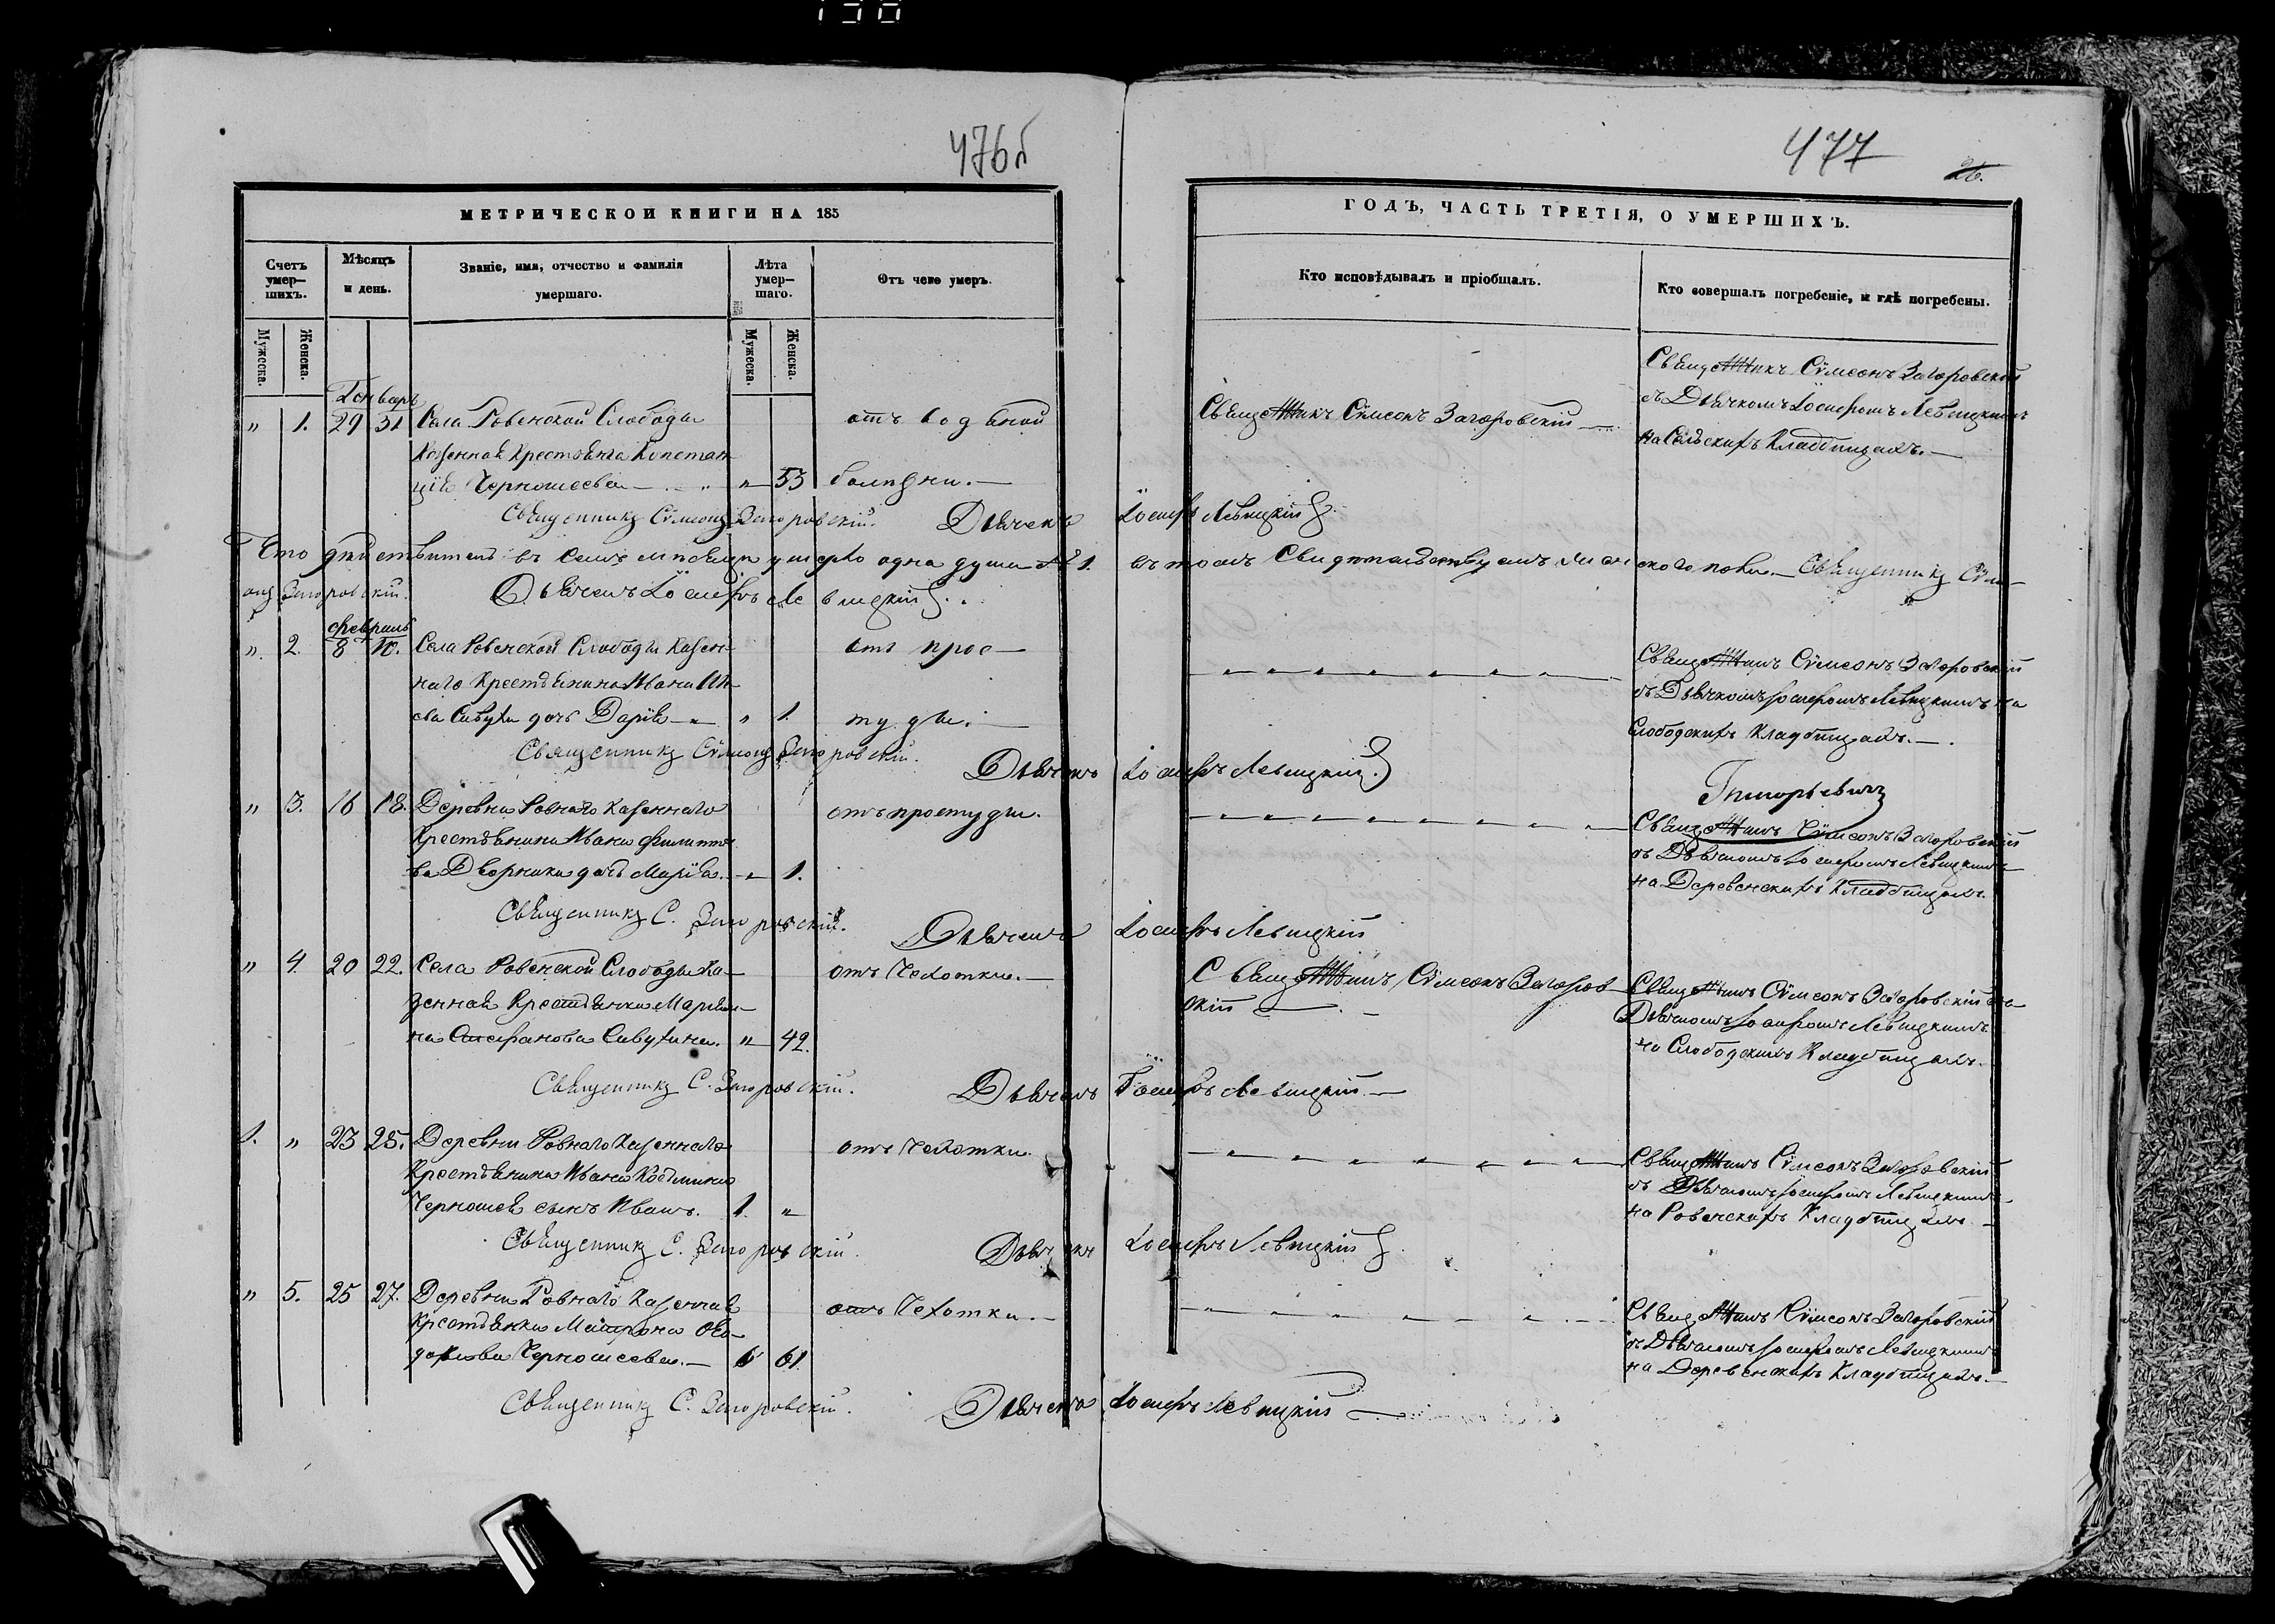 476б
МЕТРИЧЕСКОЙ КНИГИ НА 185
Счетъ умер-шихъ.
Мѣсяцъ и день.
Званіе, имя, отчество и фамилія умершаго.
Лѣта умер-шаго.
Отъ чего умеръ.
Мужеска.
Женска.
Мужеска.
Женска.
Генварь
" 1. 29 31 Села Ровенской Слободы отъ водяной
Казенная Крестьянка Констан
ція Черношеева " 53 болѣзни.
Священникъ Сѵмеонъ Загоровскій. Дьячекъ
Что дѣйствительно въ семъ мѣсяцѣ умерло одна душа № 1.
онъ Загоровскій. Дьячекъ Іосифъ Левицкій
февраль
" 2. 8 10. Села Ровенской Слободы Казен- отъ прос-
наго Крестьянина Ивана
ева Сивухи дочь Дарія " 1. туды.
Священникъ Сѵмеонъ Загоровскій. Дьячекъ
" 3. 16 18. Деревни Ровнаго Казеннаго отъ простуды.
Крестьянина Ивана Филиппо
ва Дворника дочь Марія. " 1.
Священникъ С. Загоровскій. Дьячекъ
" 4. 20 22. Села Ровенской Слободы Ка- отъ Чехотки.
зенная Крестьянка Марьи-
на Стефанова Сивухина. " 42.
Священникъ С. Загоровскій. Дьячекъ
1. " 23 25. Деревни Ровнаго Казеннаго отъ Чехотки.
Крестьянина Ивана Косьмина
Черношея сынъ Иванъ. 1. "
Священникъ С. Загоровскій. Дьячекъ
" 5. 25 27. Деревни Ровнаго Казенная отъ Чехотки.
Крестьянка Матрона Ѳео-
дорова Черношеева. " 61.
Священникъ С. Загоровскій. Дьячекъ
477
26.
ГОДЪ, ЧАСТЬ ТРЕТІЯ, О УМЕРШИХЪ.
Кто исповѣдывалъ и пріобщалъ.
Кто совершалъ погребеніе, и гдѣ погребены.
Священникъ Сѵмеонъ Загоровскій
Священникъ Сѵмеонъ Загоровскій
съ Дьячкомъ Іосифомъ Левицкимъ
на Сельскихъ Кладбищахъ.
Іосифъ Левицкій
въ томъ Свидѣтельствуемъ Священникъ Сѵме-
Священникъ Сѵмеонъ Загоровскій
съ Дьячкомъ Іосифомъ Левицкимъ на
Слободскихъ Кладбищахъ.
Іосифъ Левицкій
Григорьевичъ
Священникъ Сѵмеонъ Загоровскій
съ Дьячкомъ Іосифомъ Левицкимъ
на Деревенскихъ Кладбищахъ.
Іосифъ Левицкій
Священникъ Сѵмеонъ Загоров
скій
Священникъ Сѵмеонъ Загоровскій съ
Дьячкомъ Іосифомъ Левицкимъ
на Слободскихъ Кладбищахъ.
Іосифъ Левицкій
Священникъ Сѵмеонъ Загоровскій
съ Дьячкомъ Іосифомъ Левицкимъ
на Ровенскихъ Кладбищахъ
Іосифъ Левицкій
Священникъ Сѵмеонъ Загоровскій
съ Дьячкомъ Іосифомъ Левицкимъ
на Деревенскихъ Кладбищахъ.
Іосифъ Левицкій